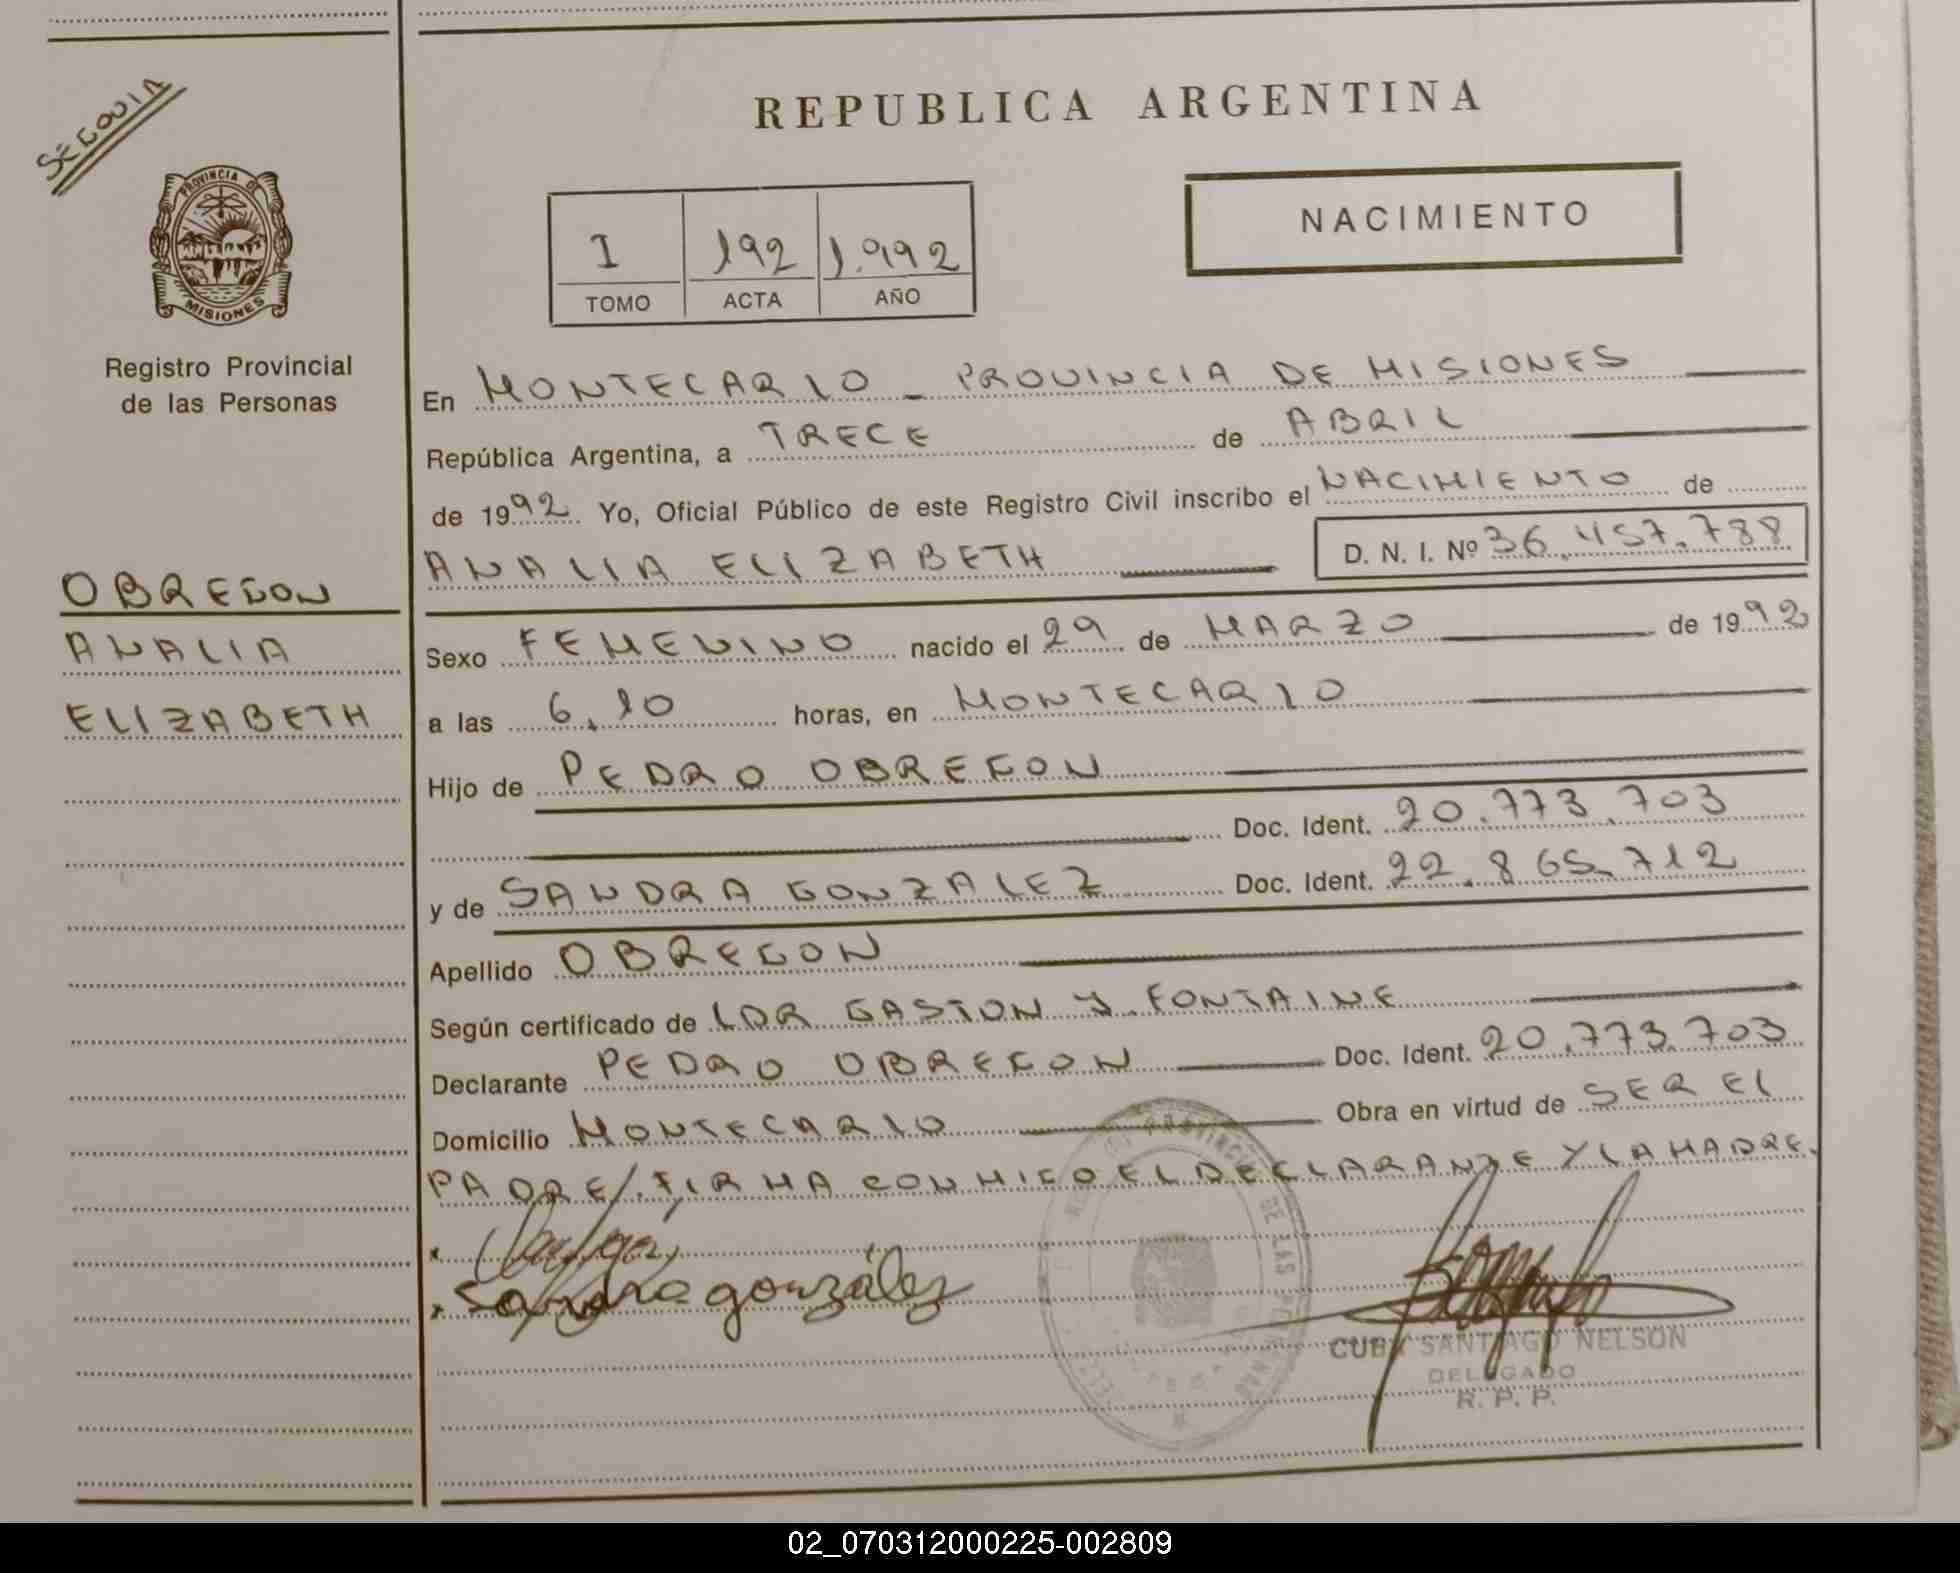 SEGOVIA
REPUBLICA ARGENTINA
PROVINCIA DE
MISIONES
Registro Provincial
de las Personas
I 192 1.992
TOMO ACTA AÑO
NACIMIENTO
En MONTECARLO - PROVINCIA DE MISIONES
República Argentina, a TRECE de ABRIL
de 1992 Yo, Oficial Público de este Registro Civil inscribo el NACIMIENTO de
ANALIA ELIZABETH D. N. I. Nº 36.457.788
OBREGON
ANALIA
ELIZABETH
Sexo FEMENINO nacido el 29 de MARZO de 1992
a las 6,10 horas, en MONTECARLO
Hijo de PEDRO OBREGON
Doc. Ident. 20.773.703
y de SANDRA GONZALEZ Doc. Ident. 22.865.712
Apellido OBREGON
Según certificado de LDR GASTON J. FONTAINE
Declarante PEDRO OBREGON Doc. Ident. 20.773.703
Domicilio MONTECARLO Obra en virtud de SER EL
PADRE/. FIRMA CONMIGO EL DECLARANTE Y LA MADRE.
x
x Sandra gonzález
PROVINCIAL DE LAS PERSONAS
SANTIAGO NELSON
DELEGADO
R. P. P.
02_070312000225-002809